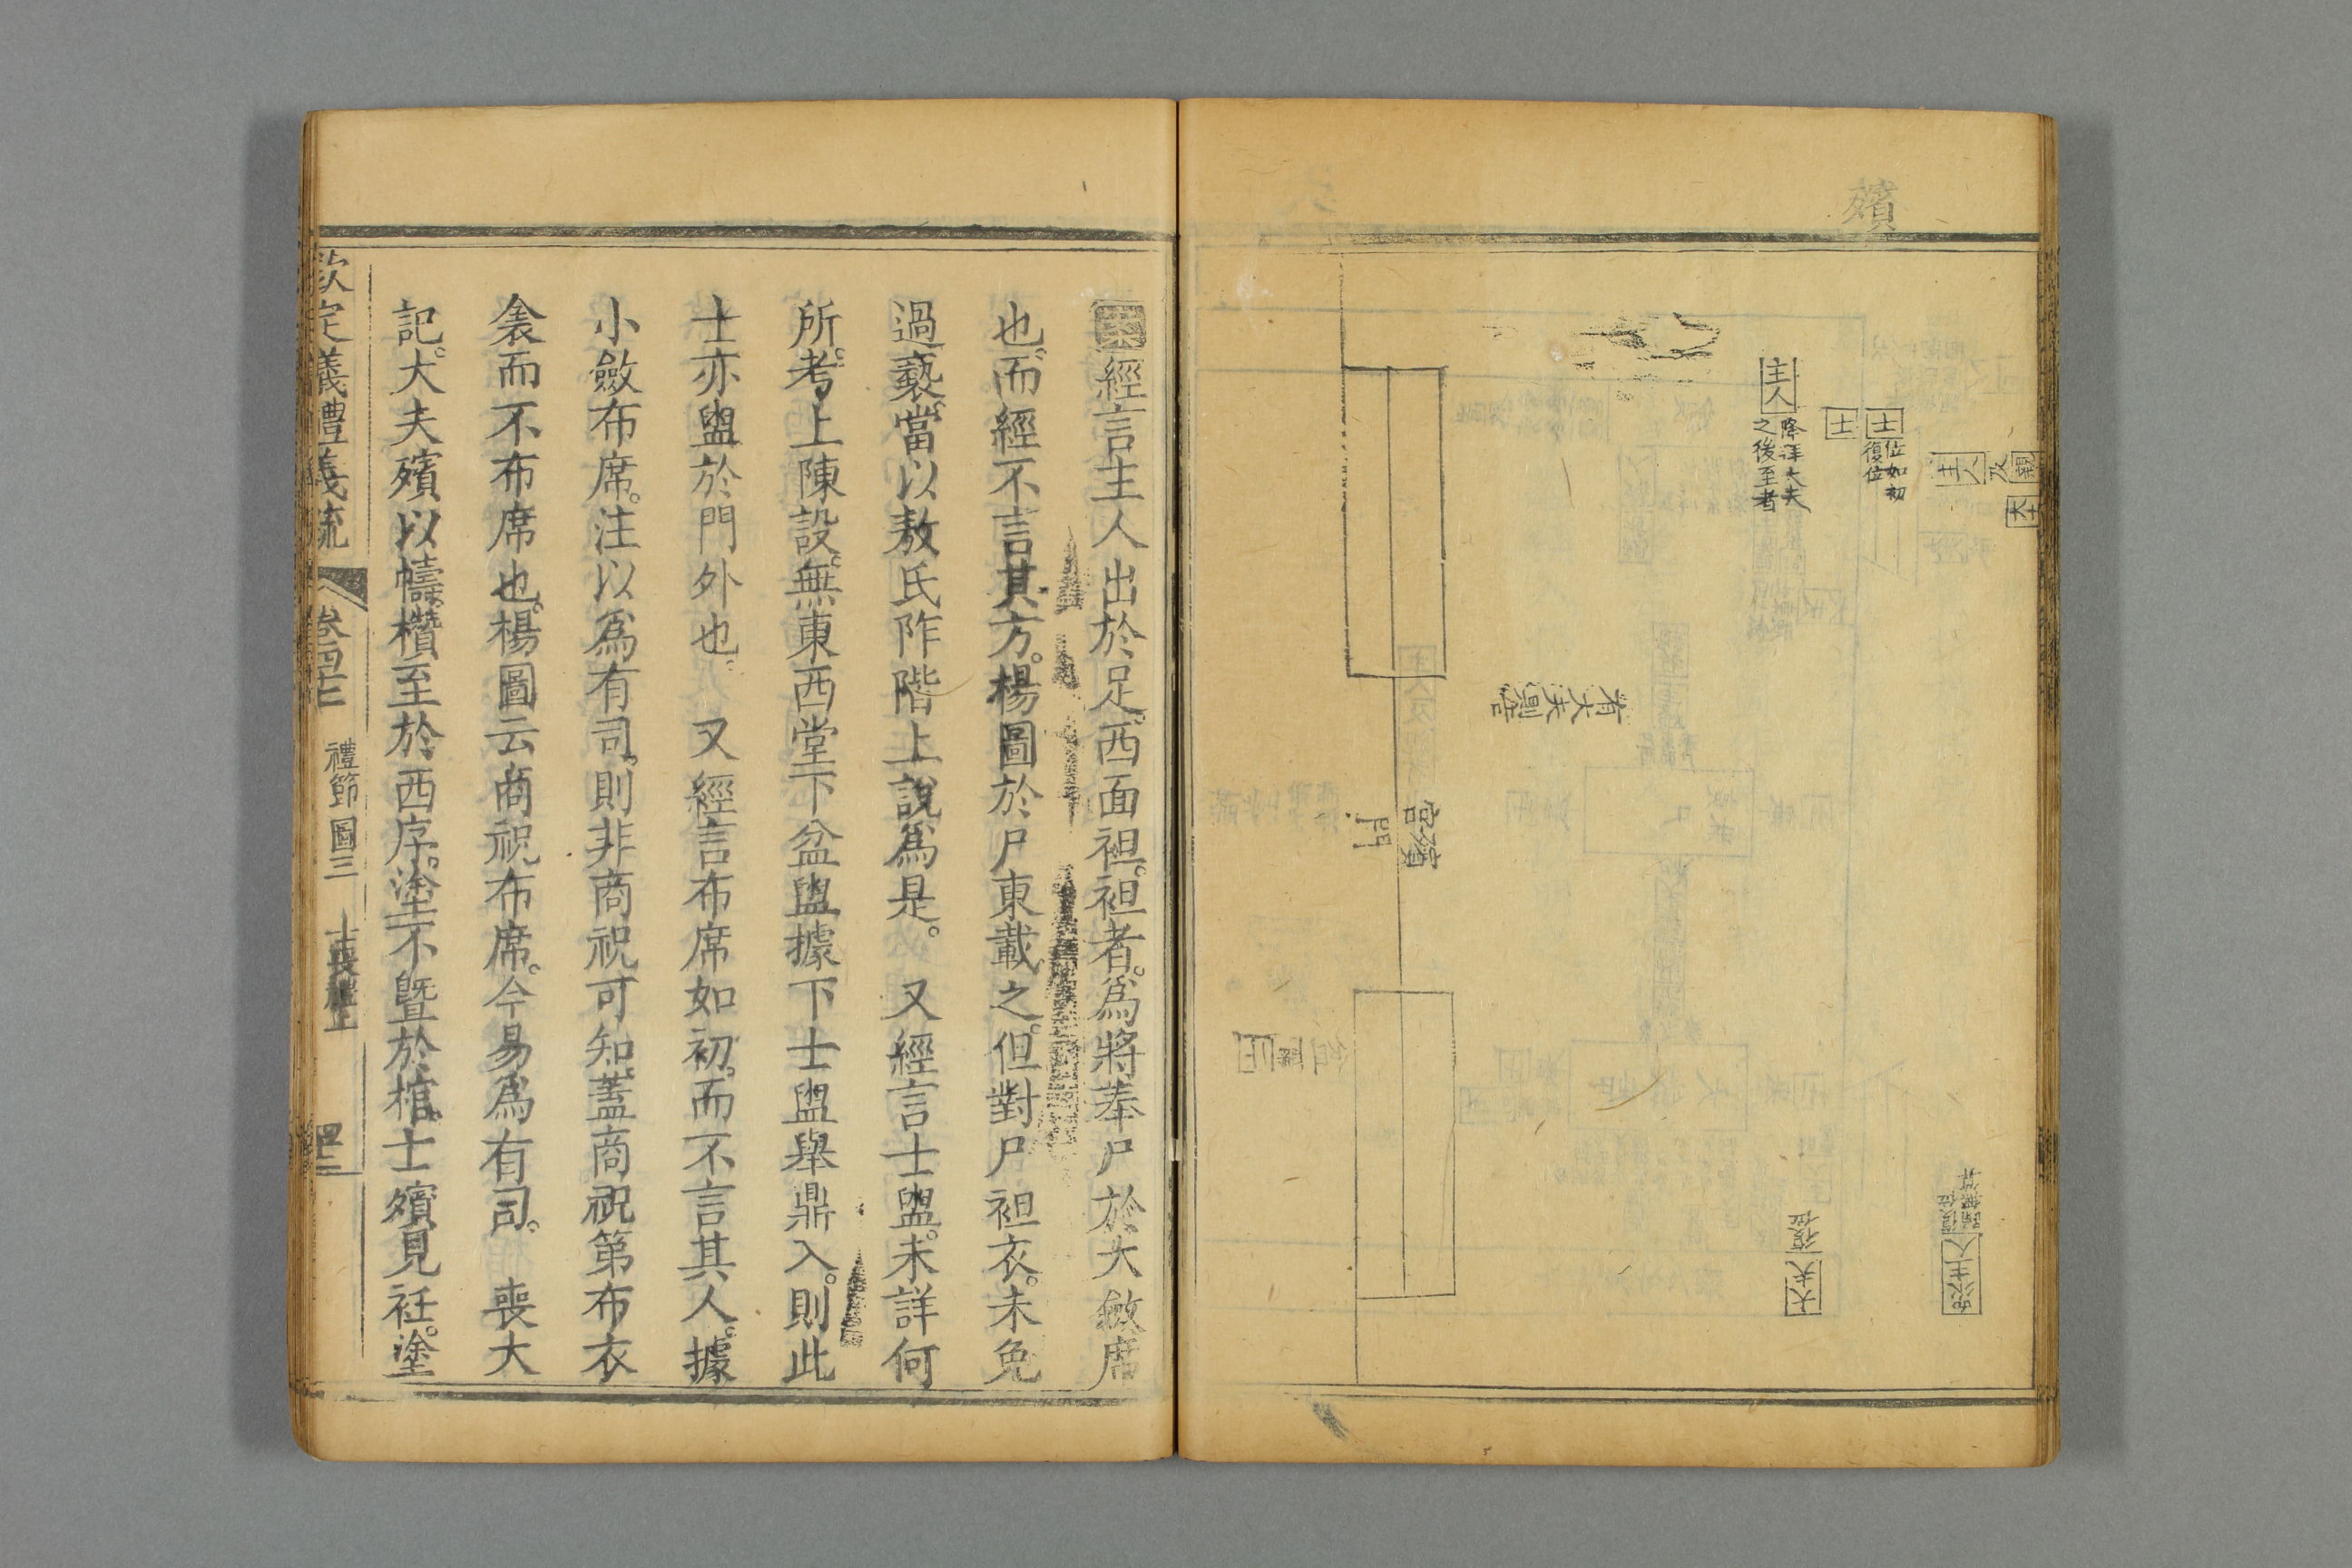 殯
親
大
及
主人
士
位如初
復位
士
主人
降拜大夫
之後至者
衆主人
復位
大夫
復位
有大夫則告
殯
宮
門
案經言主人出於足西面袒袒者爲將奉尸於大斂席
也而經不言其方楊圖於尸東載之但對尸袒衣未免
過褻當以敖氏阼階上說爲是。又經言士盥未詳何
所考上陳設無東西堂下盆盥據下士盥舉鼎入則此
士亦盥於門外也。又經言布席如初而不言其人據
小斂布席注以爲有司則非商祝可知蓋商祝第布衣
衾而不布席也楊圖云商祝布席今易爲有司。喪大
記大夫殯以幬欑至於西序塗不曁於棺士殯見衽塗
欽定儀禮義疏 卷四十七 禮節圖三 士喪禮上